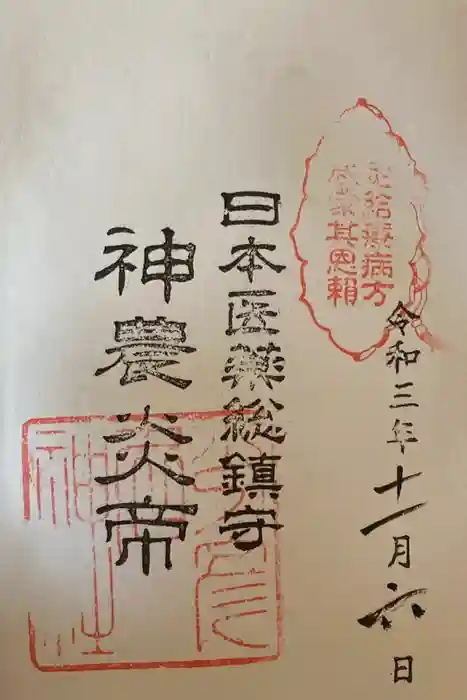 給療病方
其恩頼
令和三年十一月六日
日本医薬総鎮守
神農炎帝